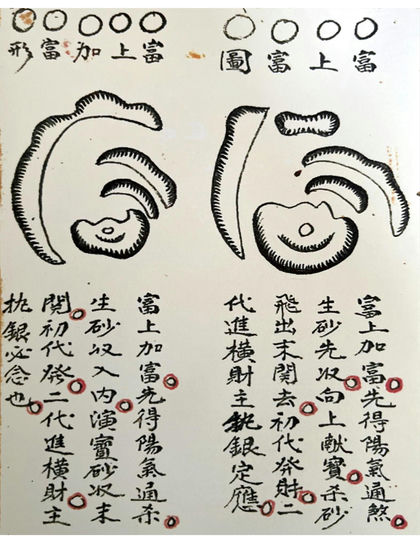 富上富圖
富上加富先得陽氣通煞
生砂先収向上献寶杀砂
飛出末関去初代発財二
代進橫財主銀定應
富上加富形
富上加富先得陽氣通杀
生砂収入內演寶砂収末
関初代発二代進橫財主
挑銀必念也